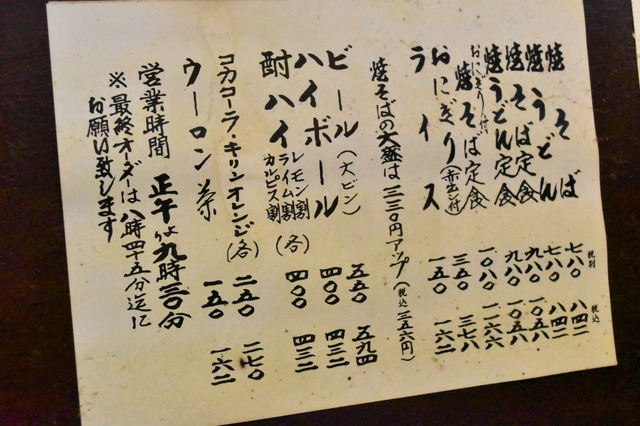 税別 税込
焼そば 七八〇 八四二
焼うどん 七八〇 八四二
焼そば定食 九八〇 一〇五八
焼うどん定食 九八〇 一〇五八
おにぎり付
焼そば定食 一〇八〇 一一六六
おにぎり(赤出シ付) 三五〇 三七八
ライス 一五〇 一六二
焼そばの大盛は三三〇円アップ(税込三五六円)
ビール(大ビン) 五五〇 五九四
ハイボール 四〇〇 四三二
酎ハイ レモン割 ライム割 カルピス割 (各) 四〇〇 四三二
コカコーラ・キリンオレンジ(各) 二五〇 二七〇
ウーロン茶 一五〇 一六二
営業時間 正午ゟ九時三〇分
※最終オーダーは八時四十五分迄に
お願い致します